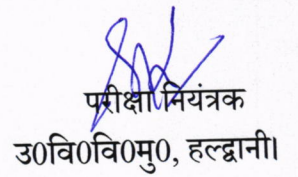 परीक्षा नियंत्रक
उ0वि0वि0मु0, हल्द्वानी।